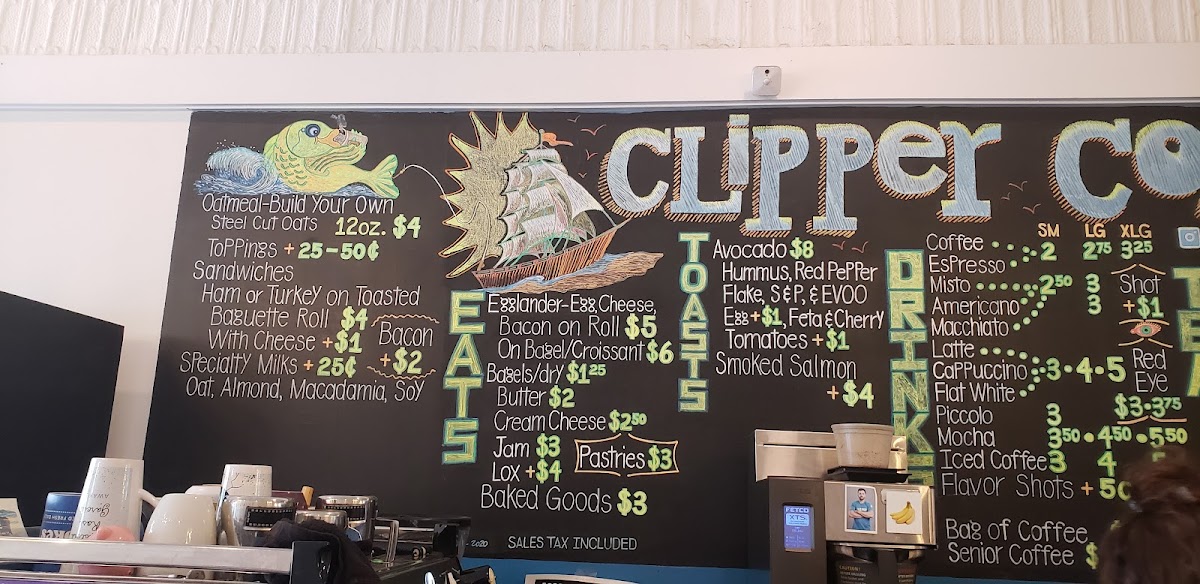 CLIPPER CO
Oatmeal-Build Your Own
Steel Cut Oats 12oz. $4
Toppings + 25-50¢
Sandwiches
Ham or Turkey on Toasted
Baguette Roll $4
With Cheese + $1
Bacon
+ $2
Specialty Milks + 25¢
Oat, Almond, Macadamia, Soy
EATS
Egglander-Egg, Cheese,
Bacon on Roll $5
On Bagel/Croissant $6
Bagels/dry $1 25
Butter $2
Cream Cheese $2 50
Jam $3
Lox + $4
Pastries $3
Baked Goods $3
-2020 SALES TAX INCLUDED
TOASTS
Avocado $8
Hummus, Red Pepper
Flake, S&P, & EVOO
Egg + $1, Feta & Cherry
Tomatoes + $1
Smoked Salmon
+ $4
SM LG XLG
Coffee 2 2 75 3 25
Espresso
Misto 2 50 3
Americano 3
Macchiato
Shot
+ $1
Latte
Cappuccino 3 • 4 • 5
Flat White
Red
Eye
$3 • 3 75
Piccolo 3
Mocha 3 50 • 4 50 • 5 50
Iced Coffee 3 4
Flavor Shots +
Bag of Coffee
Senior Coffee $
FETCO
XTS
CAUTION